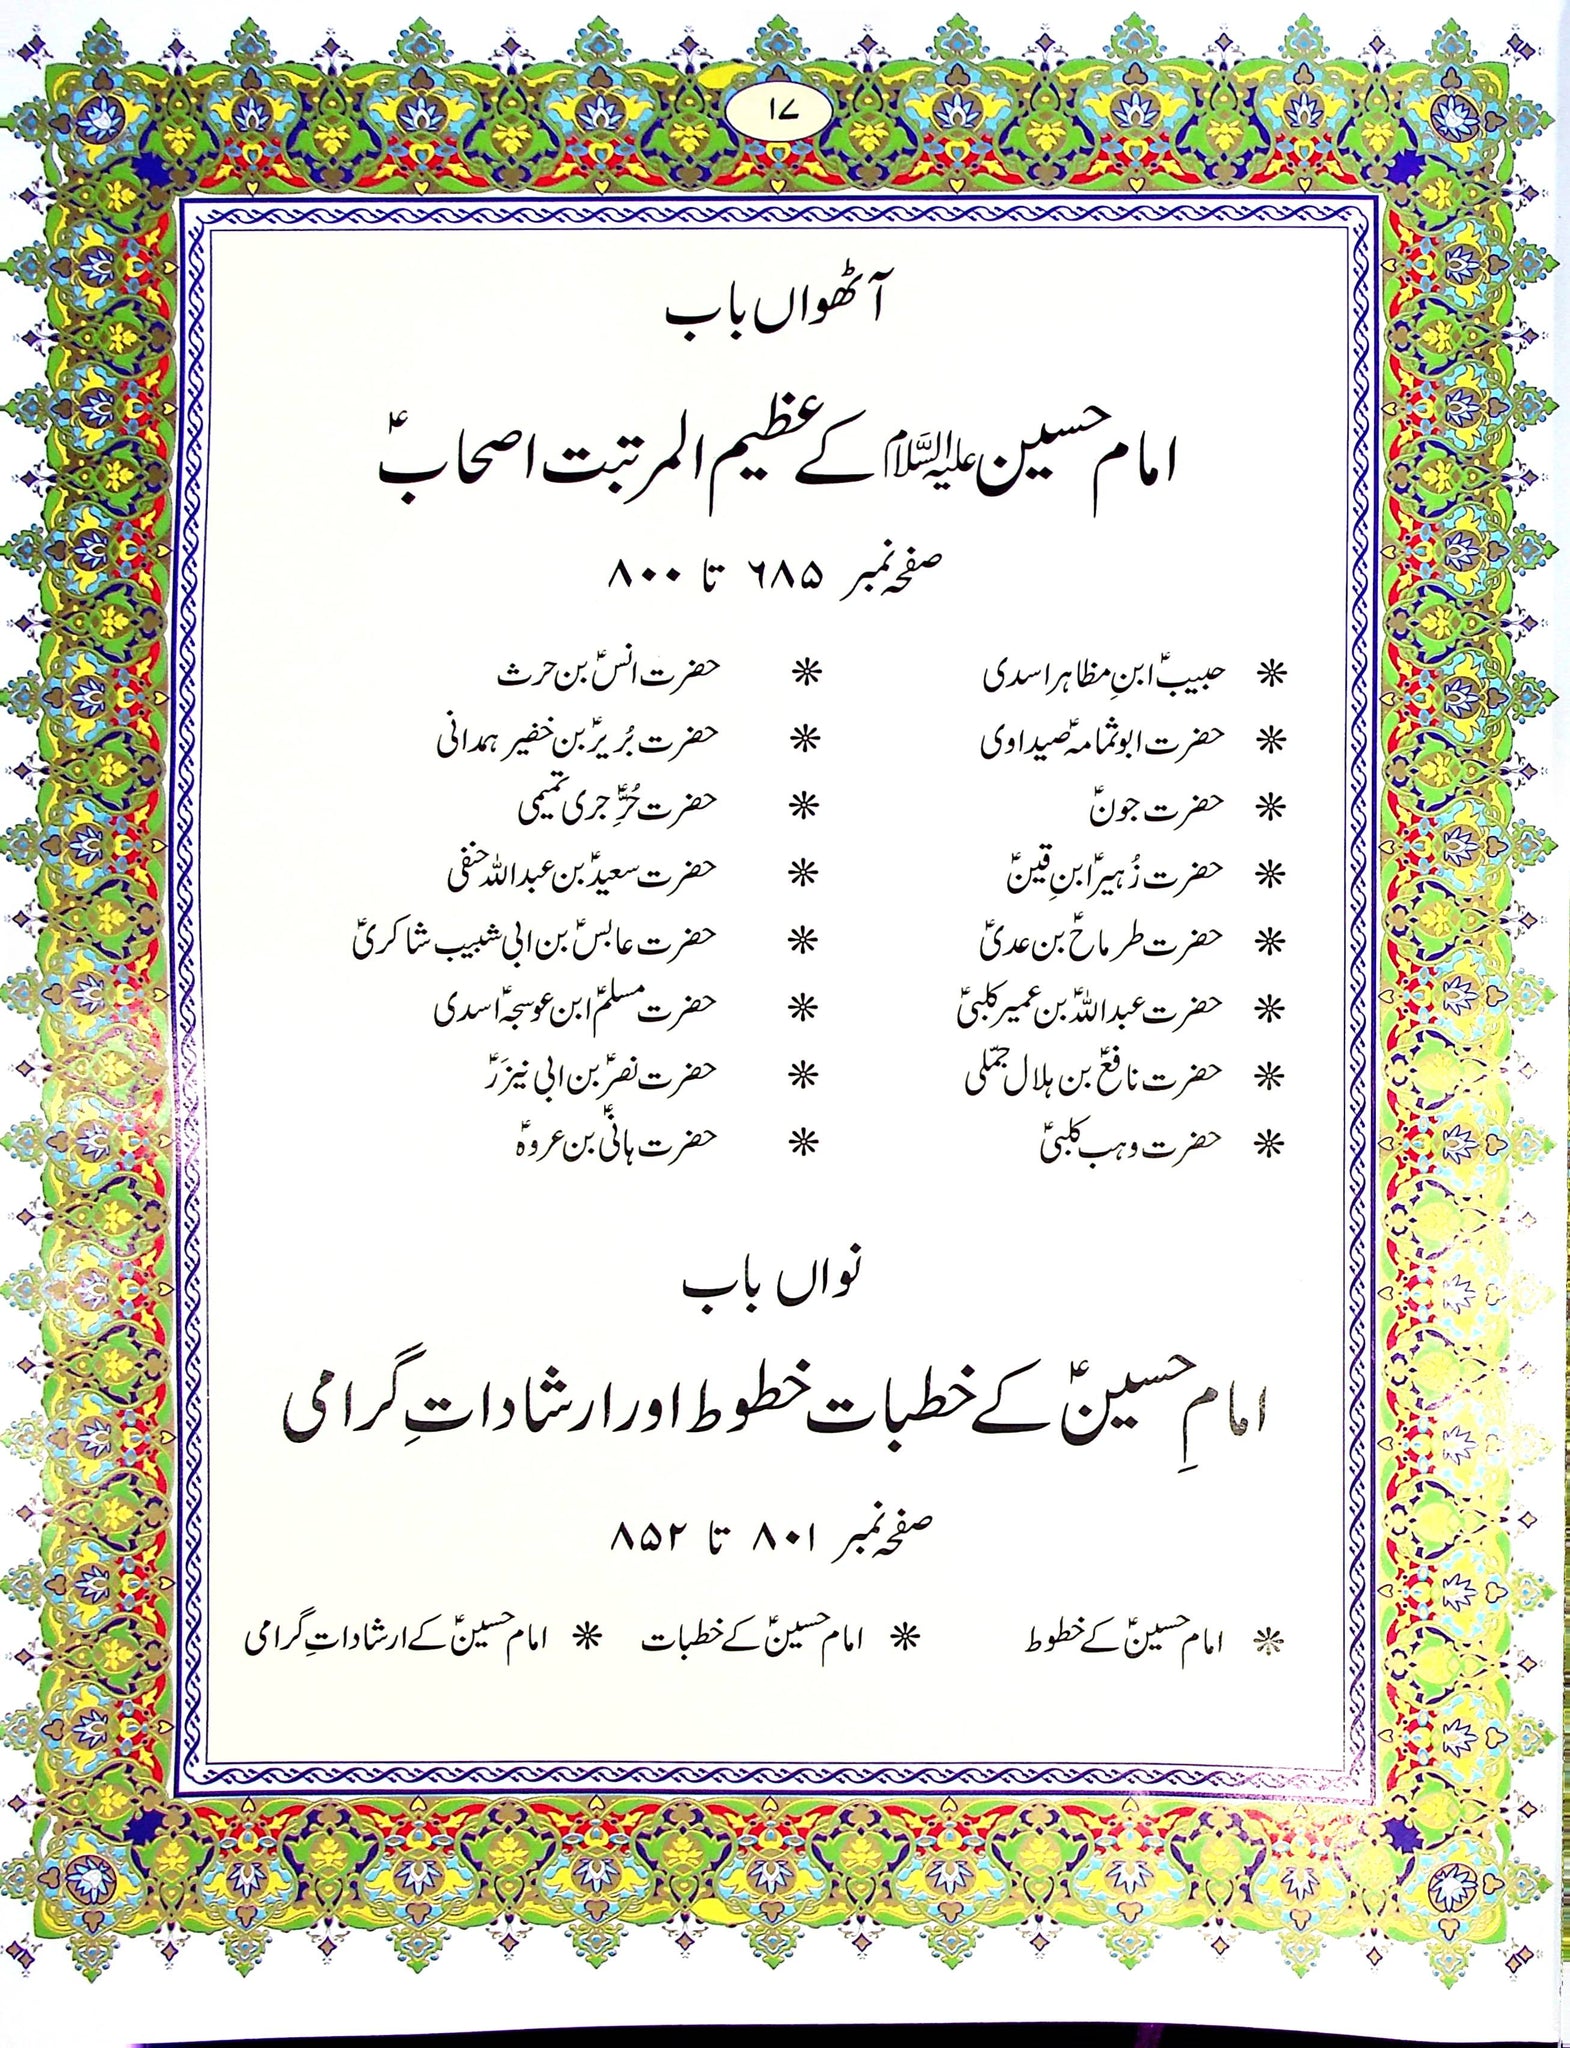 ۱۷
آٹھواں باب
امام حسین علیہ السّلام کے عظیم المرتبت اصحابؑ
صفحہ نمبر ۶۸۵ تا ۸۰۰
❋ حبیبؑ ابنِ مظاہر اسدی ❋ حضرت انسؑ بن حرث
❋ حضرت ابو ثمامہؑ صیداوی ❋ حضرت بُریرؑ بن خضیر ہمدانی
❋ حضرت جونؑ ❋ حضرت حُرِّؑ جری تمیمی
❋ حضرت زُہیرؑ ابنِ قینؑ ❋ حضرت سعیدؑ بن عبداللہ حنفی
❋ حضرت طرماحؑ بن عدیؑ ❋ حضرت عابسؑ بن ابی شبیب شاکریؑ
❋ حضرت عبداللہؑ بن عمیر کلبیؑ ❋ حضرت مسلمؑ ابن عوسجہؑ اسدی
❋ حضرت نافعؑ بن ہلال جملّی ❋ حضرت نصرؑ بن ابی نیزَرؑ
❋ حضرت وہب کلبیؑ ❋ حضرت ہانیؑ بن عروہؑ
نواں باب
امامِ حسینؑ کے خطبات خطوط اور ارشاداتِ گرامی
صفحہ نمبر ۸۰۱ تا ۸۵۲
❋ امام حسینؑ کے خطوط ❋ امام حسینؑ کے خطبات ❋ امام حسینؑ کے ارشاداتِ گرامی